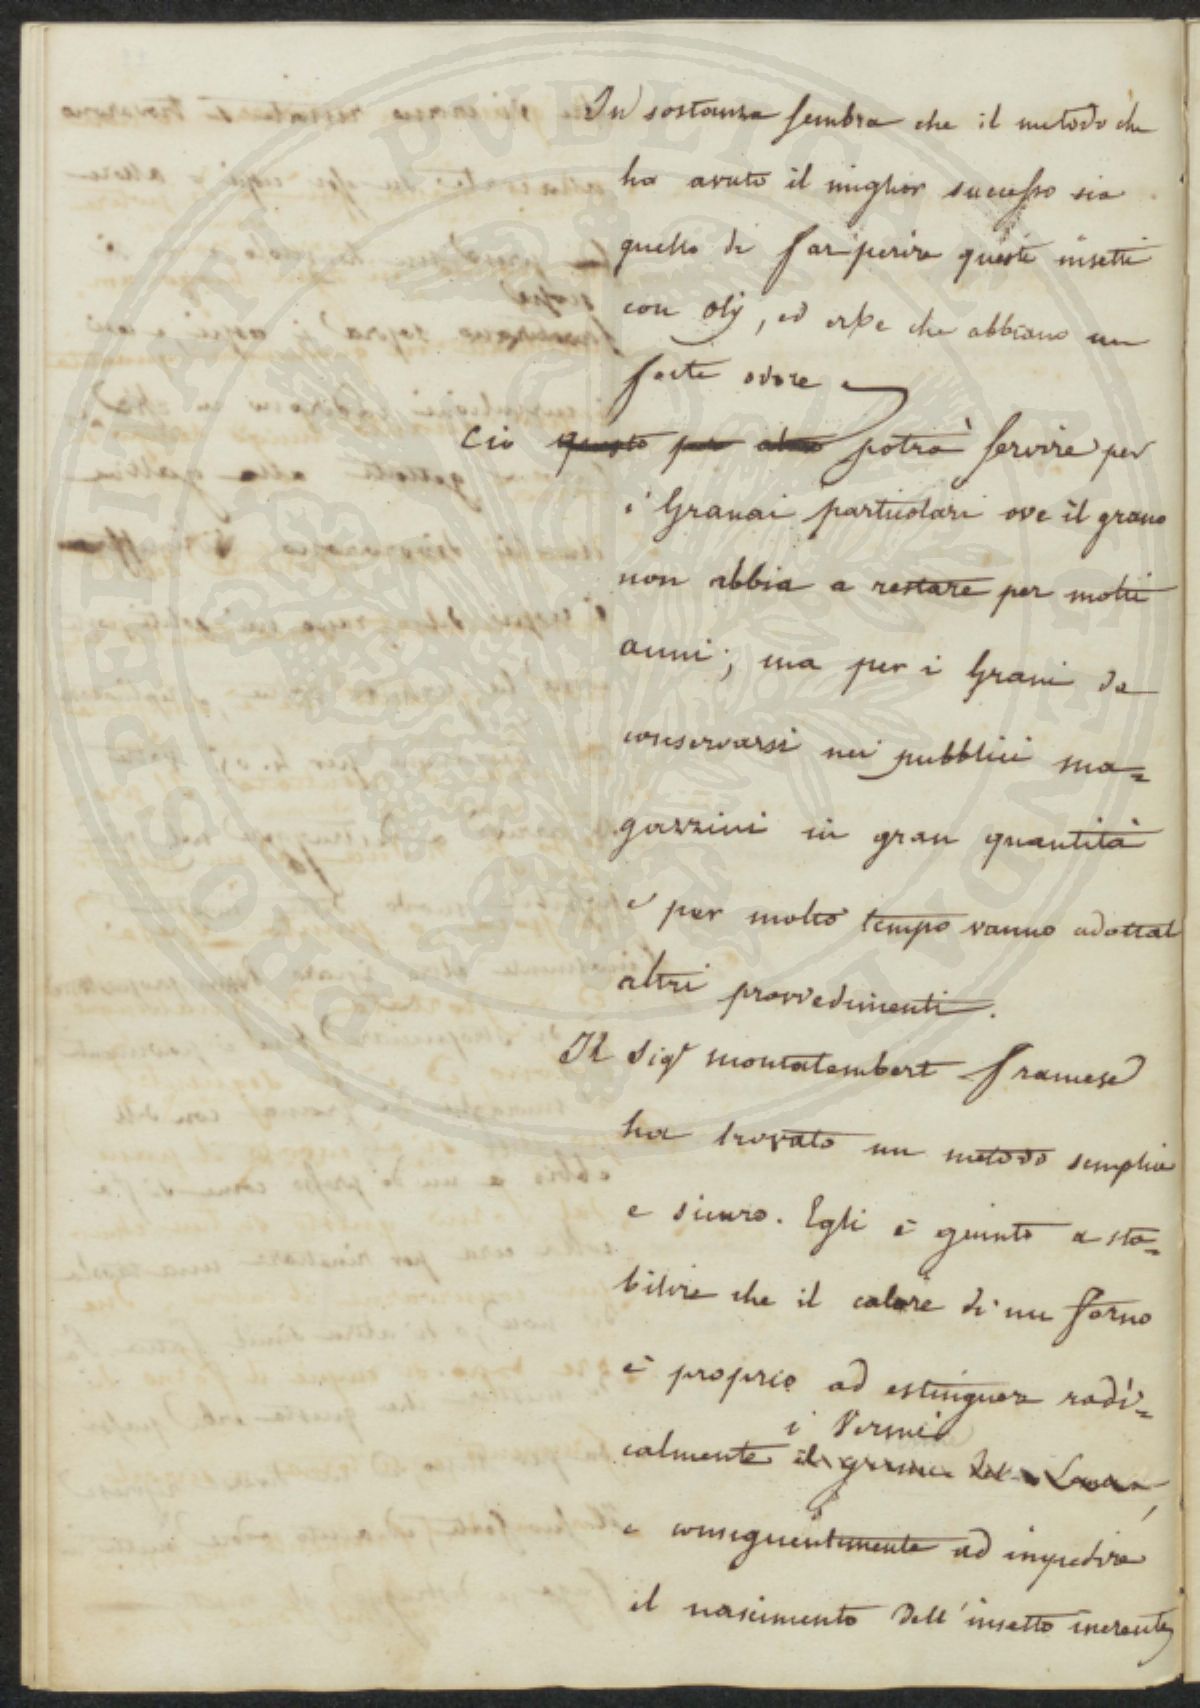 In sostanza sembra che il metodo che
ha avuto il miglior successo sia
quello di far perire questi insetti
con olj, ed erbe che abbiano un
forte odore
Ciò questo per altro potrà servire per
i Granai particolari ove il grano
non abbia a restare per molti
anni; ma per i Grani da
conservarsi nei pubblici ma=
gazzini in gran quantità
e per molto tempo vanno adottati
altri provvedimenti.
Il Sigr Montalembert francese
ha trovato un metodo semplice
e sicuro. Egli è giunto a sta=
bilire che il calore di un forno
è proprio ad estinguere radi=
i Vermi
calmente il germe
e conseguentemente ad impedire
il nascimento dell'insetto inerente
PROSPERITATI PUBLICAE AUGENDAE